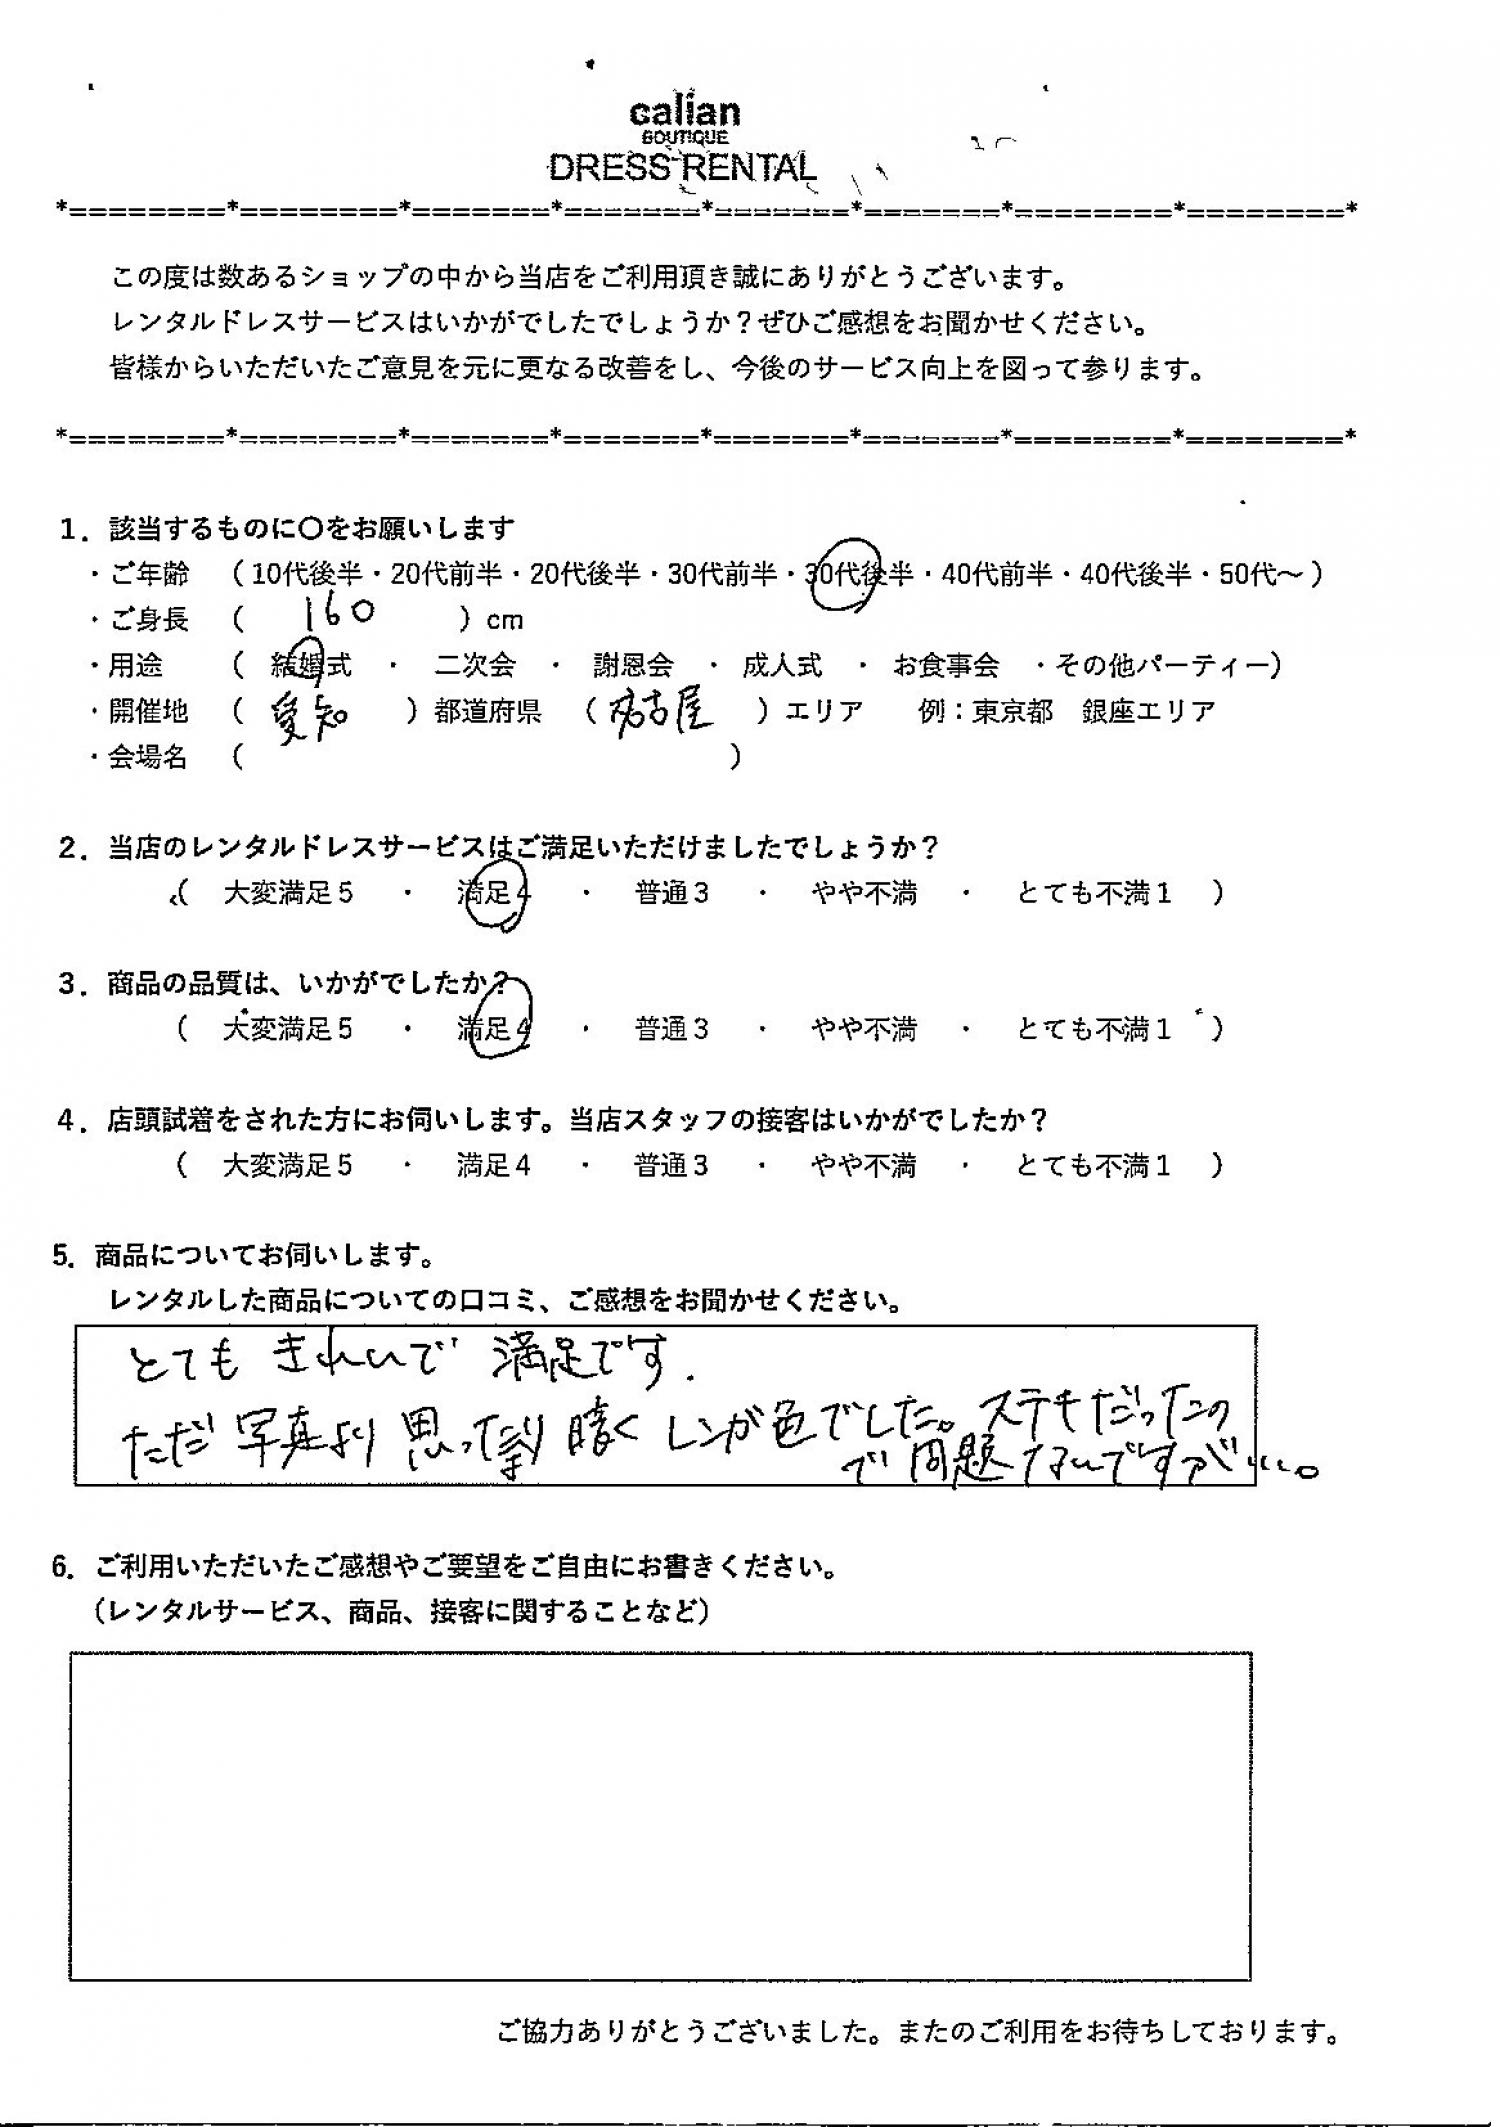 calian
BOUTIQUE
DRESS RENTAL
*========*========*=======*=======*=======*=======*========*========*
この度は数あるショップの中から当店をご利用頂き誠にありがとうございます。
レンタルドレスサービスはいかがでしたでしょうか？ぜひご感想をお聞かせください。
皆様からいただいたご意見を元に更なる改善をし、今後のサービス向上を図って参ります。
*========*========*=======*=======*=======*=======*========*========*
1．該当するものに〇をお願いします
・ご年齢　（10代後半・20代前半・20代後半・30代前半・30代後半・40代前半・40代後半・50代～）
・ご身長　（　160　）cm
・用途　（　結婚式　・　二次会　・　謝恩会　・　成人式　・　お食事会　・その他パーティー）
・開催地　（　愛知　）都道府県　（　名古屋　）エリア　例：東京都　銀座エリア
・会場名　（　　　）
2．当店のレンタルドレスサービスはご満足いただけましたでしょうか？
（　大変満足5　・　満足4　・　普通3　・　やや不満　・　とても不満1　）
3．商品の品質は、いかがでしたか？
（　大変満足5　・　満足4　・　普通3　・　やや不満　・　とても不満1　）
4．店頭試着をされた方にお伺いします。当店スタッフの接客はいかがでしたか？
（　大変満足5　・　満足4　・　普通3　・　やや不満　・　とても不満1　）
5．商品についてお伺いします。
レンタルした商品についての口コミ、ご感想をお聞かせください。
とても きれいで 満足です.
ただ 写真より 思ってたより 暗く レンガ色でした。ステキだったの
で 問題ないですが…。
6．ご利用いただいたご感想やご要望をご自由にお書きください。
（レンタルサービス、商品、接客に関することなど）
ご協力ありがとうございました。またのご利用をお待ちしております。